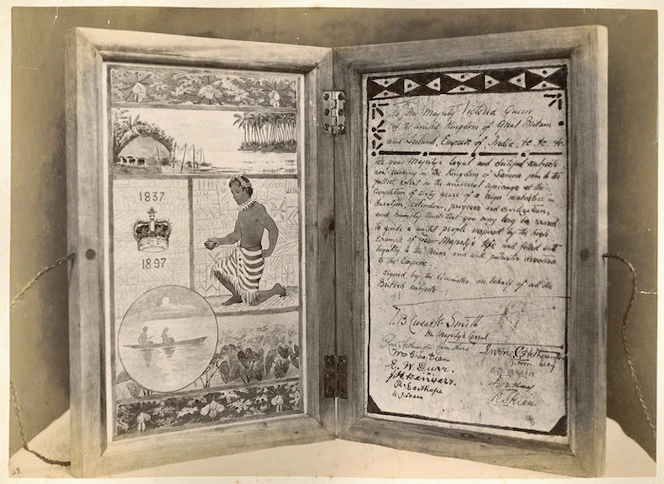 1837
1897
To Her Majesty Victoria Queen
of the United Kingdom of Great Britain
and Ireland, Empress of India, &c. &c. &c.
We your Majesty's loyal and dutiful subjects
now residing in the Kingdom of Samoa join to the
fullest extent in the universal rejoicings at the
Completion of Sixty years of a Reign matchless in
duration, splendour, progress and civilization,
and humbly trust that you may long be spared
to guide a united people inspired by the bright
Example of Your Majesty's life and filled with
loyalty to the Throne and with patriotic devotion
to the Empire.
Signed by the Committee on behalf of all the
British subjects
T. B. Cusack-Smith
Her Majesty's Consul
E. W. Gurr